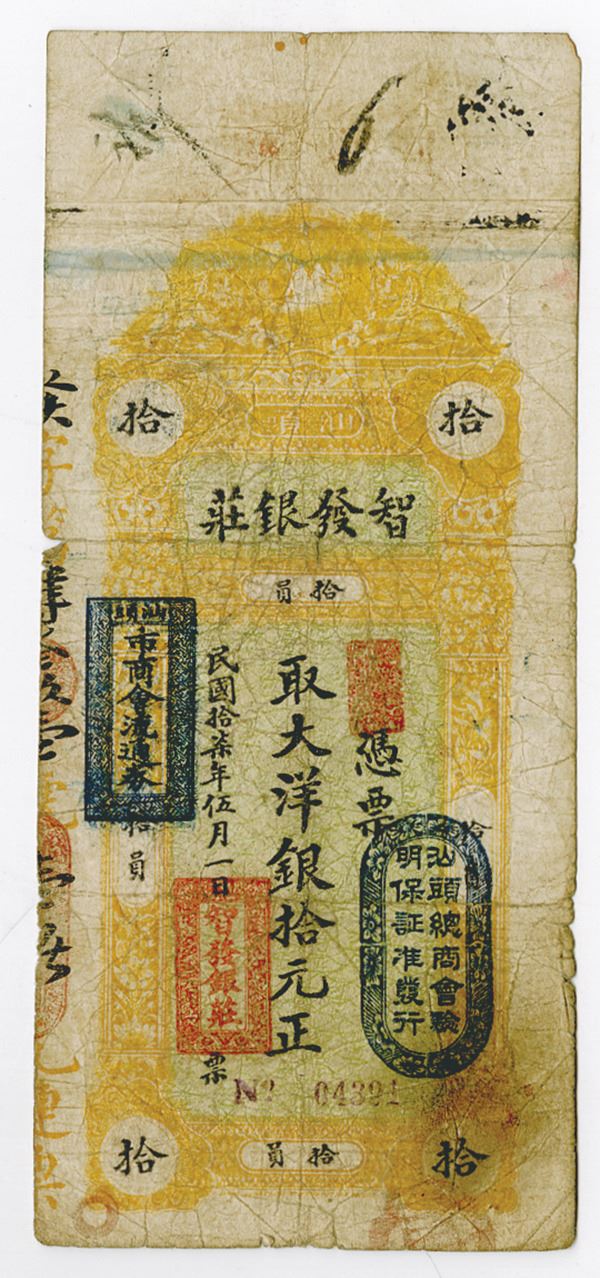 拾
拾
智發銀莊
拾員
憑票
取大洋銀拾元正
民國拾柒年伍月一日
票
汕頭
市商會流通券
拾員
汕頭總商會驗
明保証准發行
智發銀莊
№ 04391
拾
拾員
拾